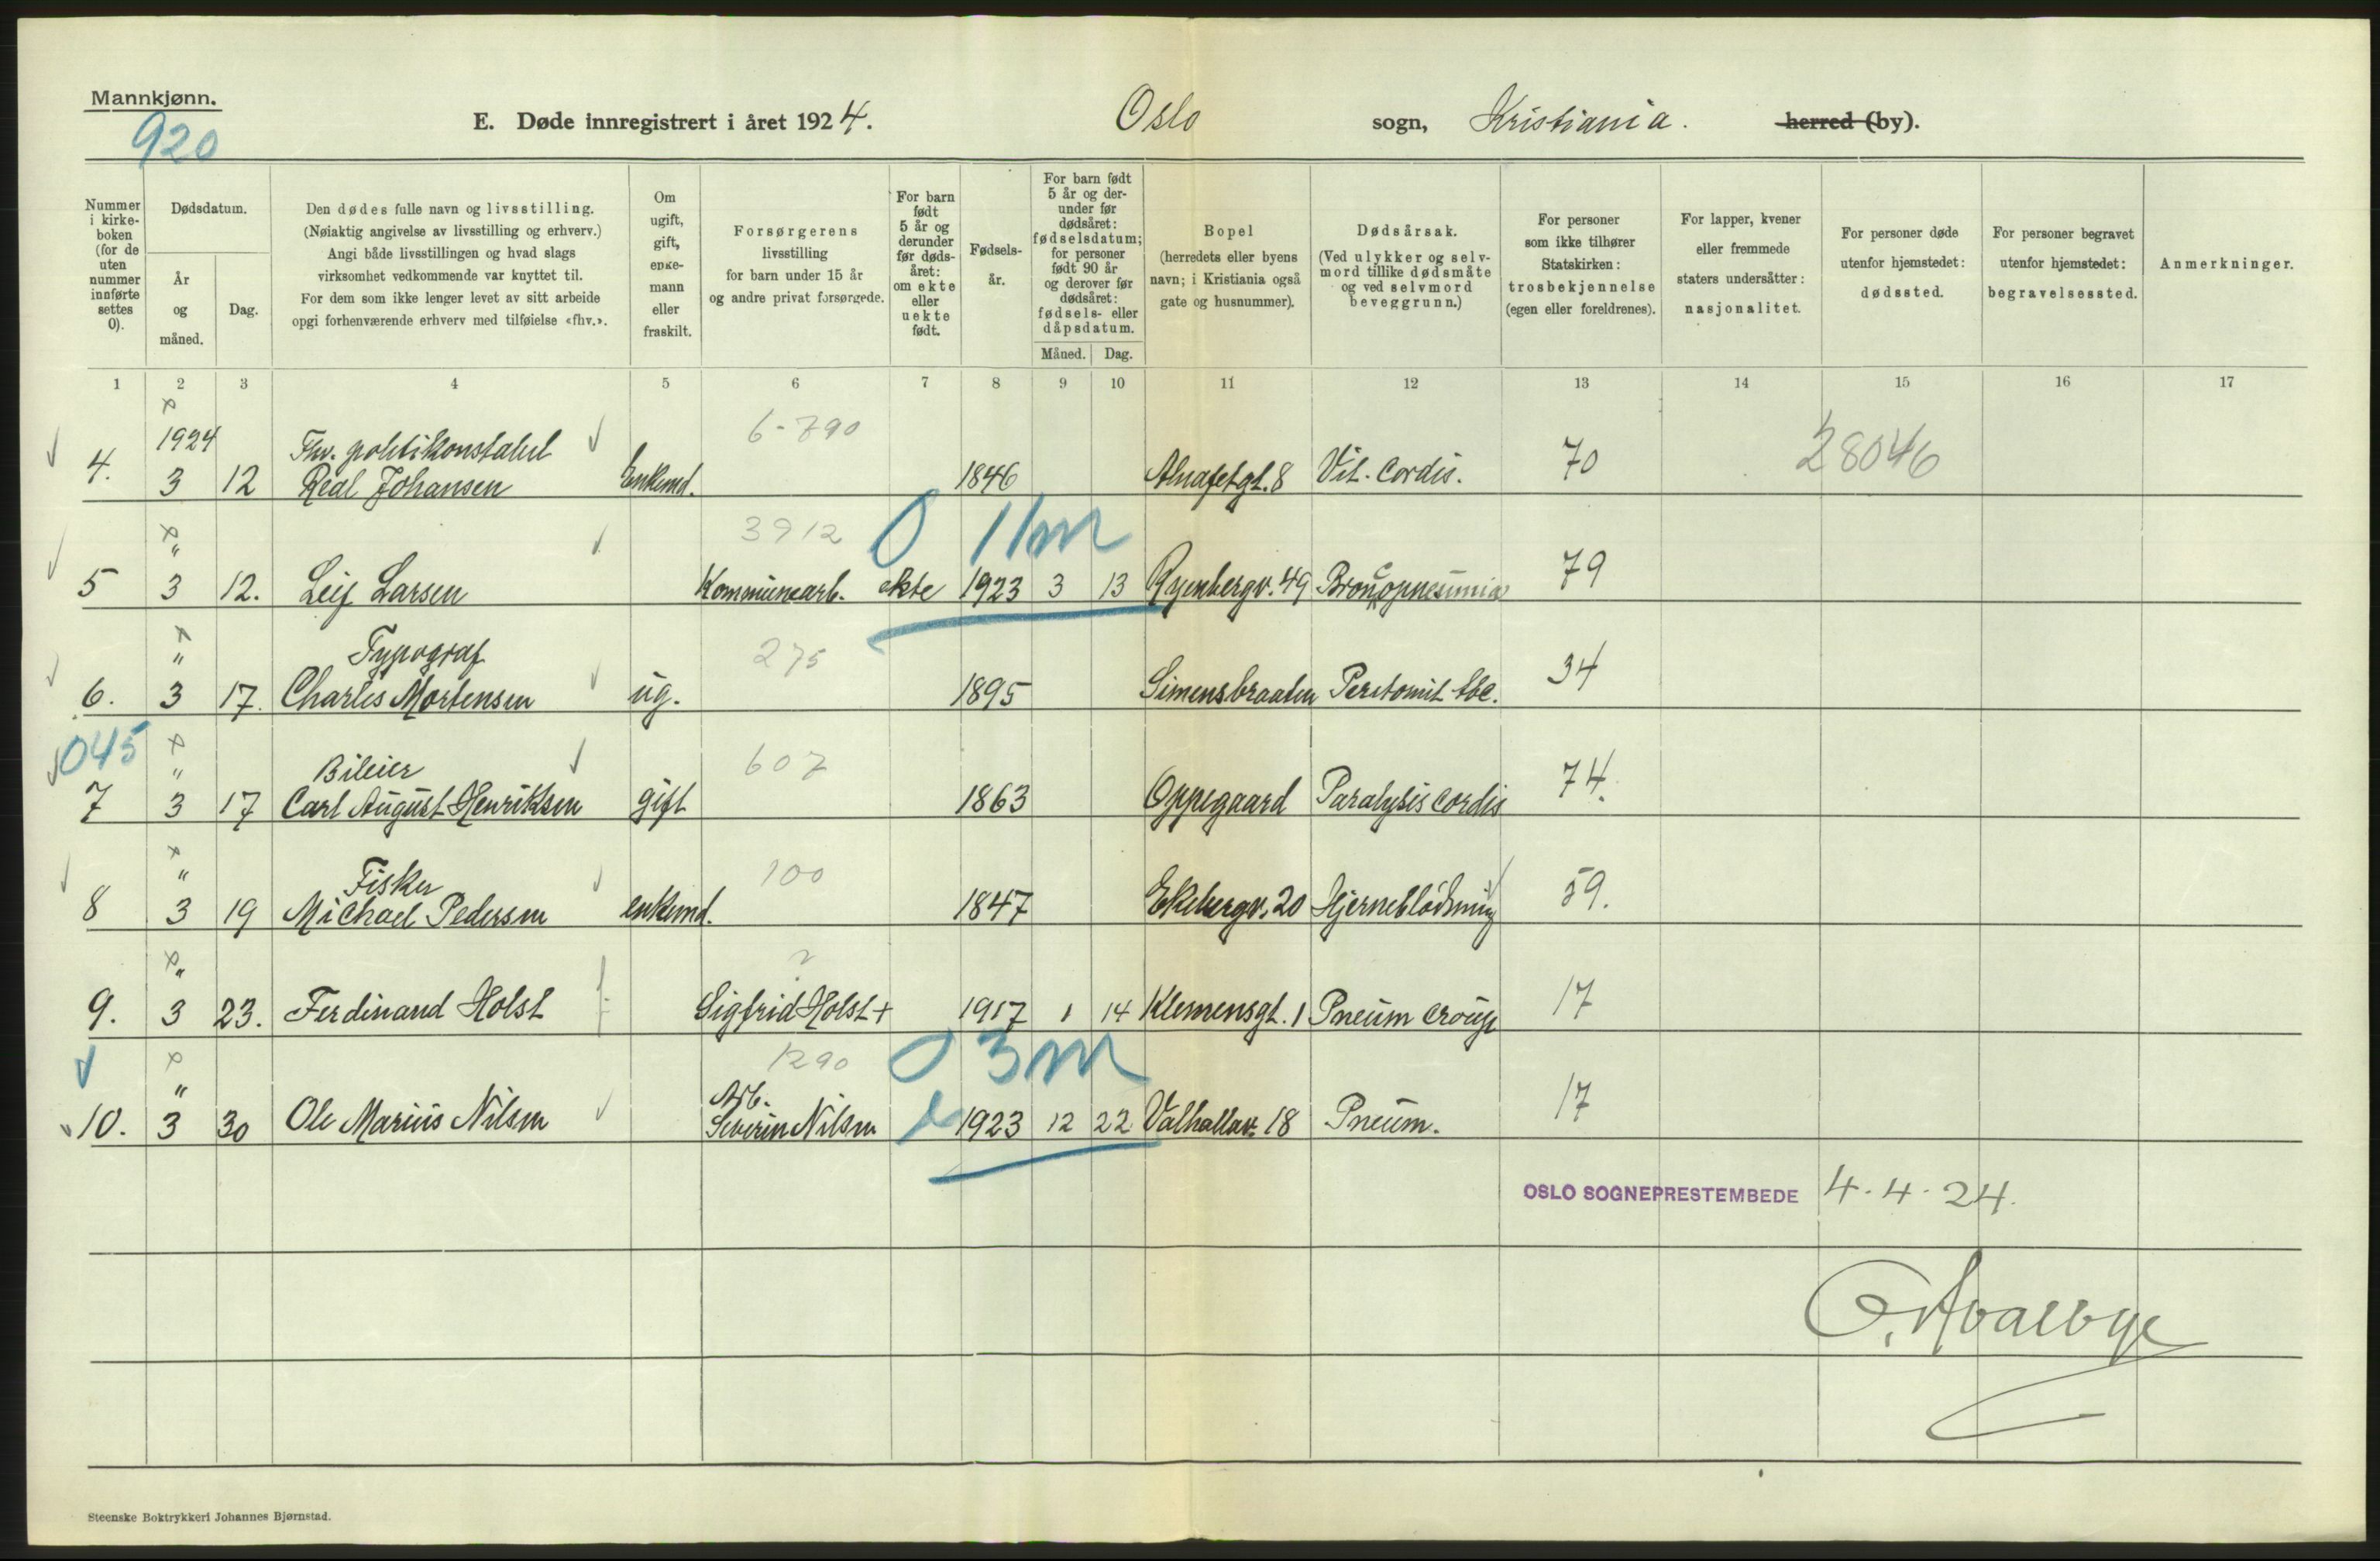 Mannkjønn.
920
E. Døde innregistrert i året 1924. Oslo sogn, Kristiania. herred (by).
Nummer i kirke-boken (for de uten nummer innførte settes 0).
Dødsdatum.
År og måned.
Dag.
Den dødes fulle navn og livsstilling.
(Nøiaktig angivelse av livsstilling og erhverv.)
Angi både livsstillingen og hvad slags
virksomhet vedkommende var knyttet til.
For dem som ikke lenger levet av sitt arbeide
opgi forhenværende erhverv med tilføielse «fhv.».
Om ugift, gift, enke-mann eller fraskilt.
Forsørgerens
livsstilling
for barn under 15 år
og andre privat forsørgede.
For barn født 5 år og derunder før døds-året: om ekte eller uekte født.
Fødsels-år.
For barn født 5 år og der-under før dødsåret: fødselsdatum; for personer født 90 år og derover før dødsåret: fødsels- eller dåpsdatum.
Måned. Dag.
Bopel
(herredets eller byens
navn; i Kristiania også
gate og husnummer).
Dødsårsak.
(Ved ulykker og selv-
mord tillike dødsmåte
og ved selvmord
beveggrunn.)
For personer
som ikke tilhører
Statskirken:
trosbekjennelse
(egen eller foreldrenes).
For lapper, kvener
eller fremmede
staters undersåtter:
nasjonalitet.
For personer døde
utenfor hjemstedet:
dødssted.
For personer begravet
utenfor hjemstedet:
begravelsessted.
Anmerkninger.
1 2 3 4 5 6 7 8 9 10 11 12 13 14 15 16 17
1924 Fhv. politikonstabel 6-790
4. 3 12 Real Johansen Enkemd. 1846 Alnafetgt. 8 Vit. Cordis. 70 28046
" 3912 0 11m
5 3 12. Leif Larsen Kommunearb. ekte 1923 3 13 Ryenbergv. 49 Broncopneumia 79
" Typograf 275
6. 3 17. Charles Mortensen ug. 1895 Simensbraaten Peritonit tbc. 34
045 " Bileier 607
7 3 17 Carl August Henriksen gift 1863 Oppegaard Paralysis cordis 74.
" Fisker 100
8 3 19 Michael Pedersen enkemd. 1847 Ekebergv. 20 Hjerneblødning 59.
" 2
9. 3 23. Ferdinand Holst Sigfrid Holst + 1917 1 14 Klemensgt. 1 Pneum croup 17
" 1290 0 3m
Arb.
10. 3 30 Ole Marius Nilsen Severin Nilsen e 1923 12 22 Valhallav. 18 Pneum. 17
OSLO SOGNEPRESTEMBEDE 4.4.24.
Steenske Boktrykkeri Johannes Bjørnstad.